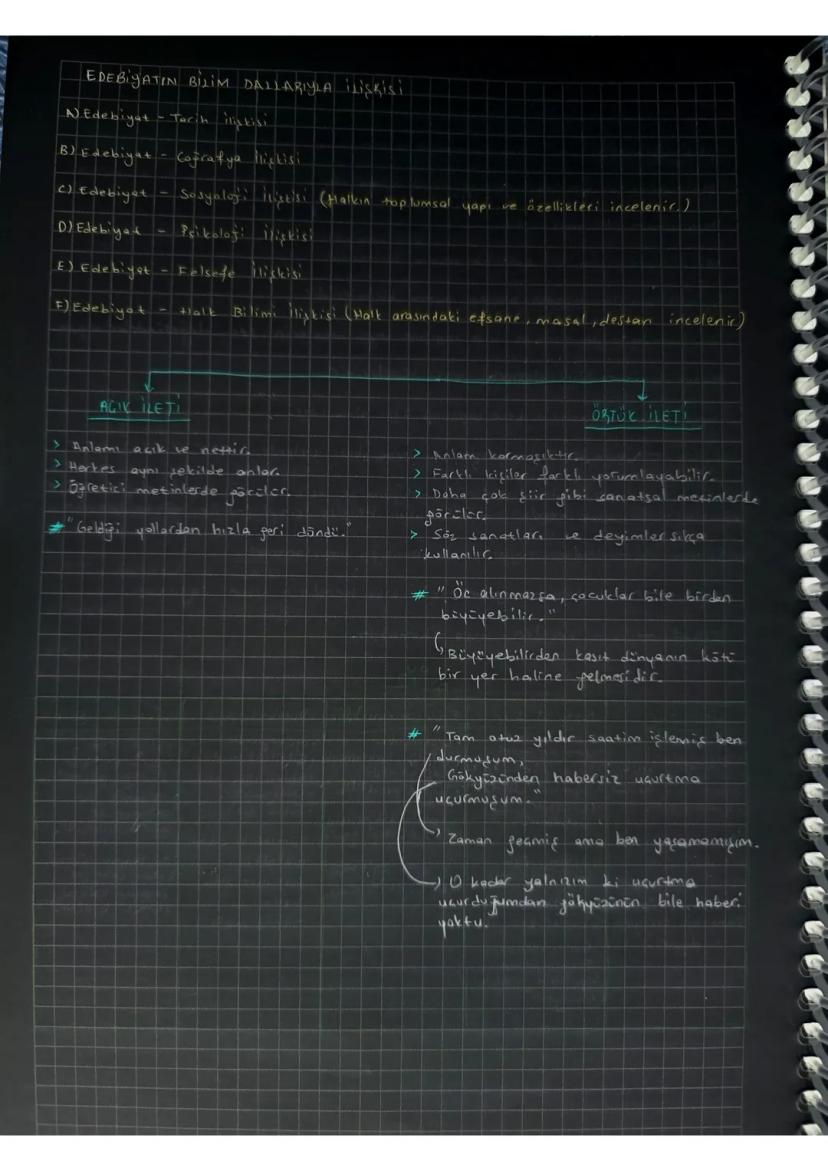 EDEBİYATIN BİLİM DALLARIYLA İLİŞKİSİ
A) Edebiyat - Tarih İlişkisi
B) Edebiyat - Coğrafya İlişkisi
C) Edebiyat - Sosyoloji İlişkisi (Halkın toplumsal yapı ve özellikleri incelenir.)
D) Edebiyat - Psikoloji İlişkisi
E) Edebiyat - Felsefe İlişkisi
F) Edebiyat - Halk Bilimi İlişkisi (Halk arasındaki efsane, masal, destan incelenir)
AÇIK İLETİ
> Anlamı açık ve nettir.
> Herkes aynı şekilde anlar.
> Öğretici metinlerde görülür.
# "Geldiği yollardan hızla geri döndü."
ÖRTÜK İLETİ
> Anlam karmaşıktır.
> Farklı kişiler farklı yorumlayabilir.
> Daha çok şiir gibi sanatsal metinlerde
görülür.
> Söz sanatları ve deyimler sıkça
kullanılır.
# "Öç alınmazsa, çocuklar bile birden
büyüyebilir."
Büyüyebilirden kasıt dünyanın kötü
bir yer haline gelmesidir.
# "Tam otuz yıldır saatim işlemiş ben
durmuşum,
Gökyüzünden habersiz uçurtma
uçurmuşum."
Zaman geçmiş ama ben yaşamamışım.
O kadar yalnızım ki uçurtma
uçurduğumdan gökyüzünün bile haberi
yoktu.